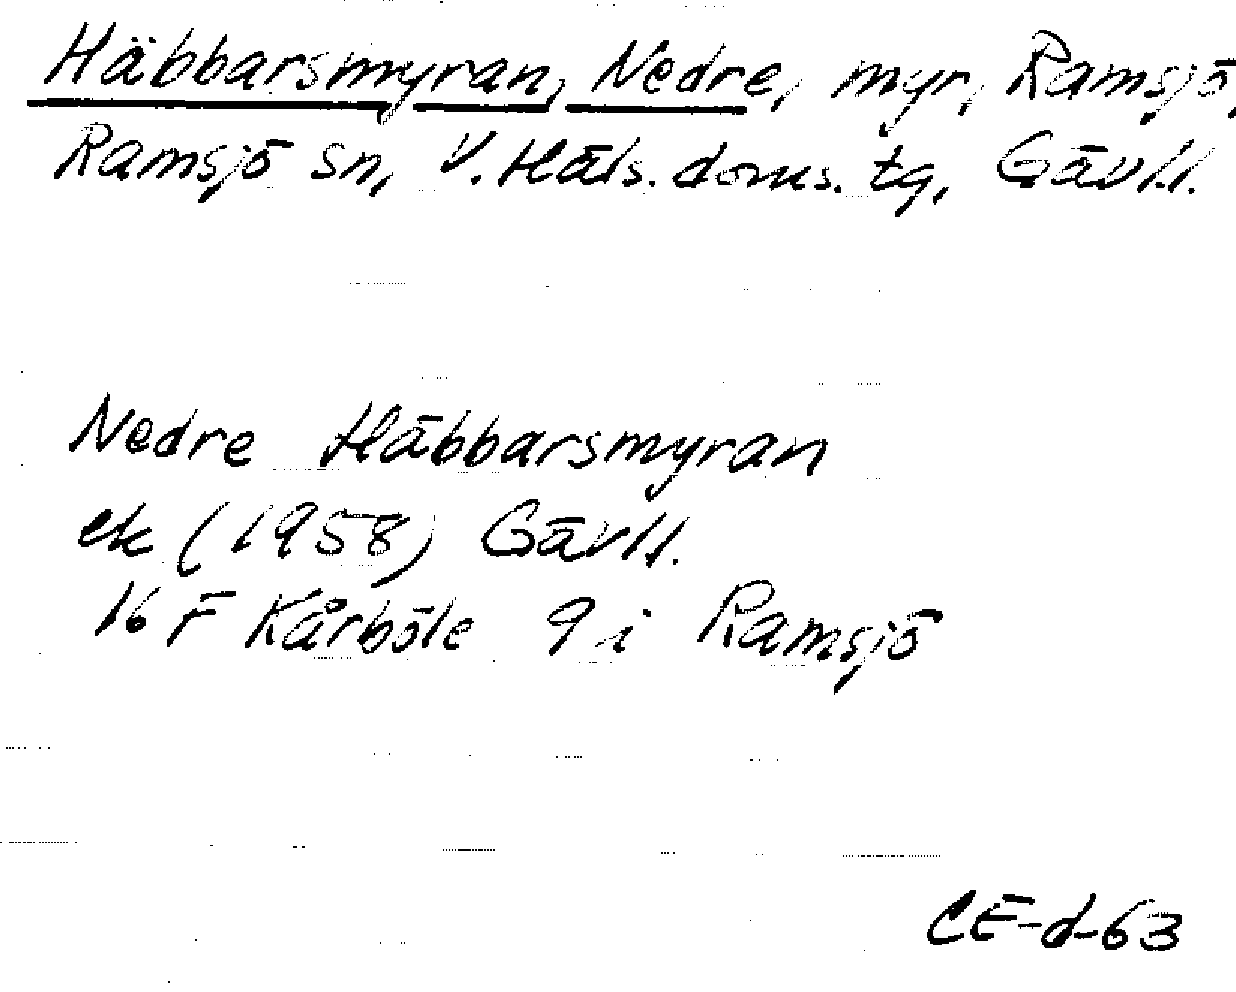 Häbbarsmyran, Nedre, myr, Ramsjö,
Ramsjö sn, V. Häls. doms. tg, Gävl.l.
Nedre Häbbarsmyran
ek (1958) Gävl.l.
16 F Kårböle 9 i Ramsjö
CE-d-63